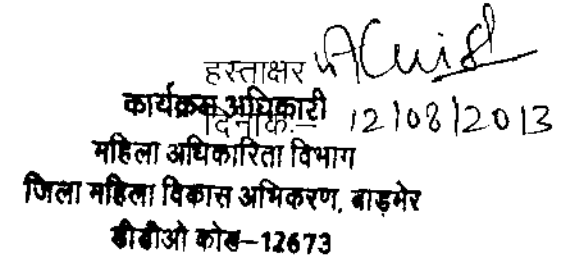 हस्ताक्षर
कार्यक्रम अधिकारी
दिनांक:– 12/08/2013
महिला अधिकारिता विभाग
जिला महिला विकास अभिकरण, बाड़मेर
डीडीओ कोड–12673